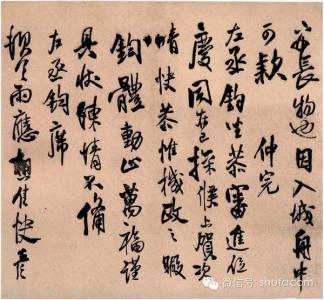 長物也因入城舟中
可款 仲完
左丞鈞坐恭審進位
慶同在已探候上賀次
情快恭惟機政之暇
鈞體動止萬福謹
具狀陳情不備
左丞鈞席
雨應佳快
微信号: shufa.com